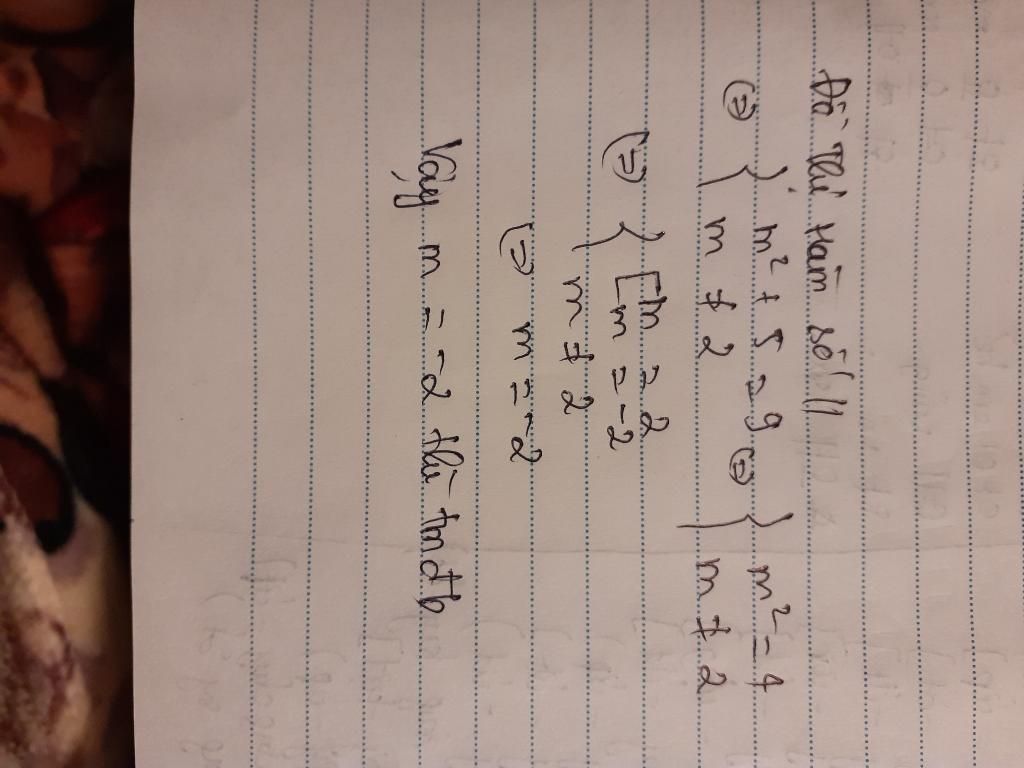 Đồ thị hàm số //
(=) { m² + 5 = 9 (=) { m² = 4
m ≠ 2 m ≠ 2
(=) { [ m = 2
[ m = -2
m ≠ 2
(=) m = -2
Vậy m = -2 thì tmđb